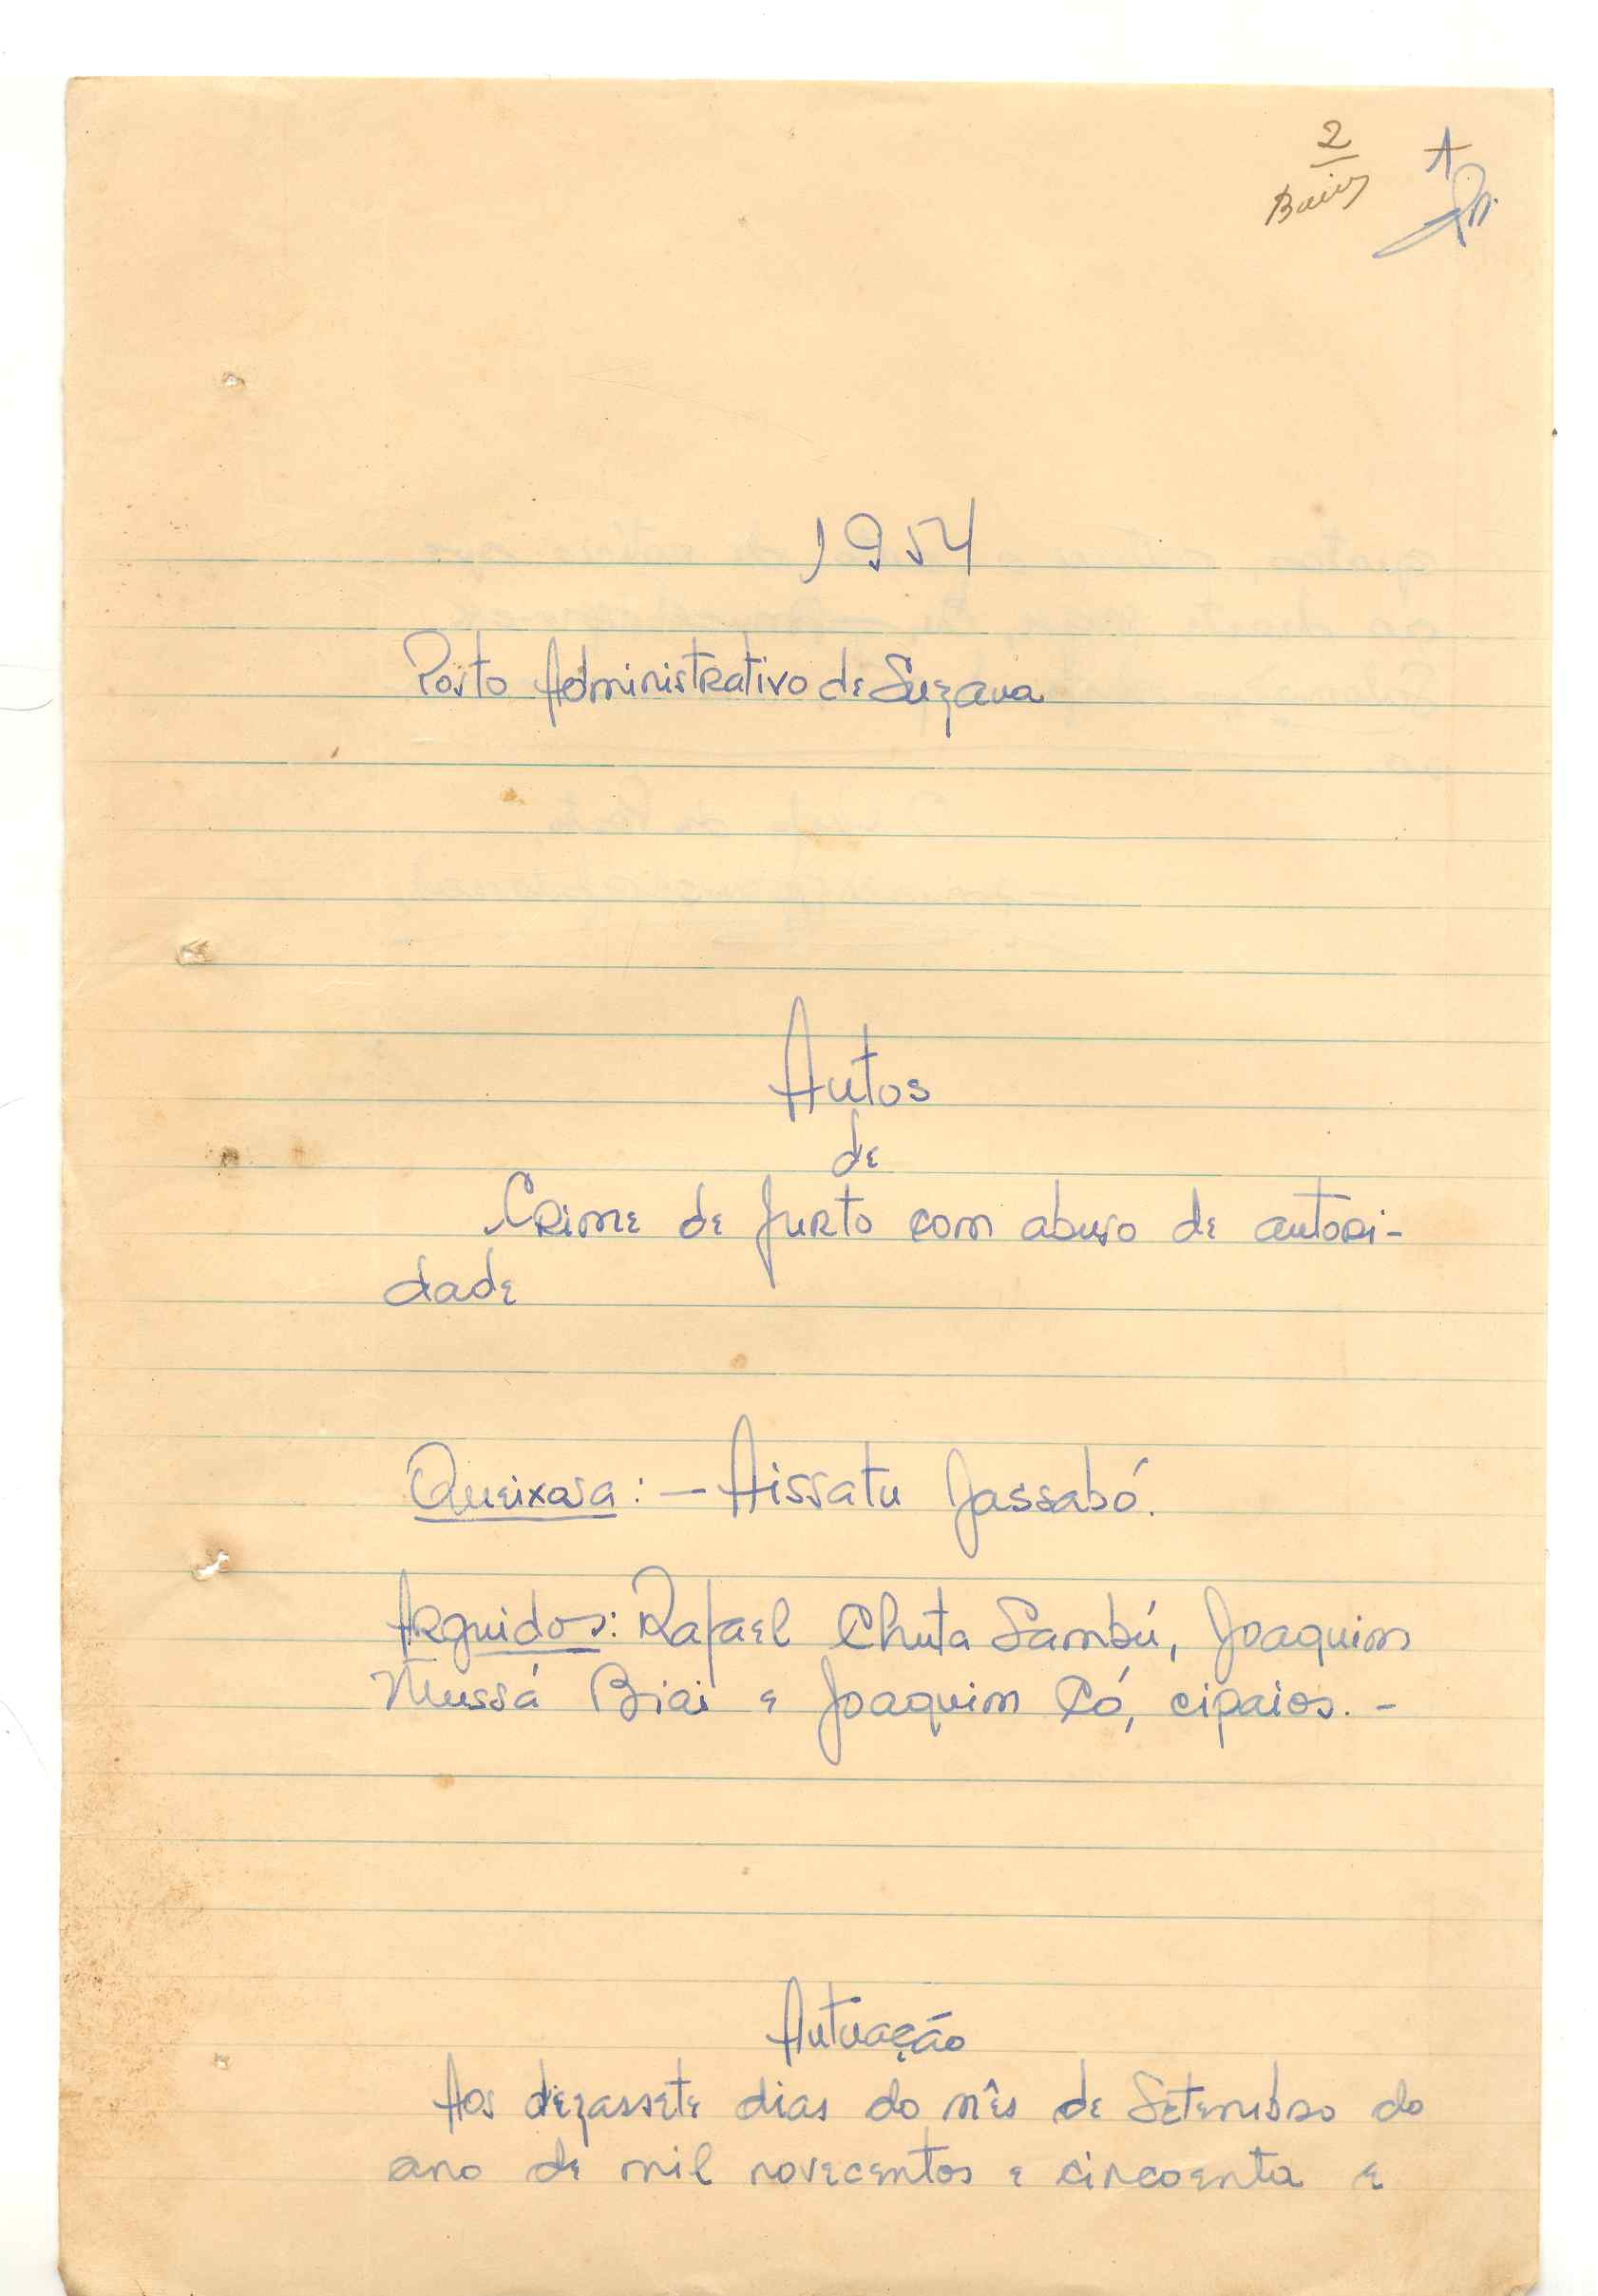 2
1954
Posto Administrativo de Suzana
Autos
de
Crime de furto com abuso de autori-
dade
Queixosa: — Aissatu Jassabó.
Arguidos: Rafael Chuta Sambú, Joaquim
Mussá Biai e Joaquim Có, cipaios. -
Autuação
Aos dezassete dias do mês de Setembro do
ano de mil novecentos e cincoenta e